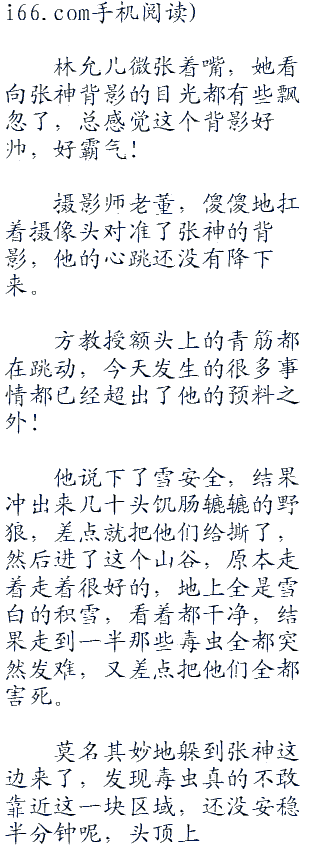 i66.com手机阅读)
林允儿微张着嘴，她看
向张神背影的目光都有些飘
忽了，总感觉这个背影好
帅，好霸气!
摄影师老董，傻傻地扛
着摄像头对准了张神的背
影，他的心跳还没有降下
来。
方教授额头上的青筋都
在跳动，今天发生的很多事
情都已经超出了他的预料之
外!
他说下了雪安全，结果
冲出来几十头饥肠辘辘的野
狼，差点就把他们给撕了，
然后进了这个山谷，原本走
着走着很好的，地上全是雪
白的积雪，看着都干净，结
果走到一半那些毒虫全都突
然发难，又差点把他们全都
害死。
莫名其妙地躲到张神这
边来了，发现毒虫真的不敢
靠近这一块区域，还没安稳
半分钟呢，头顶上